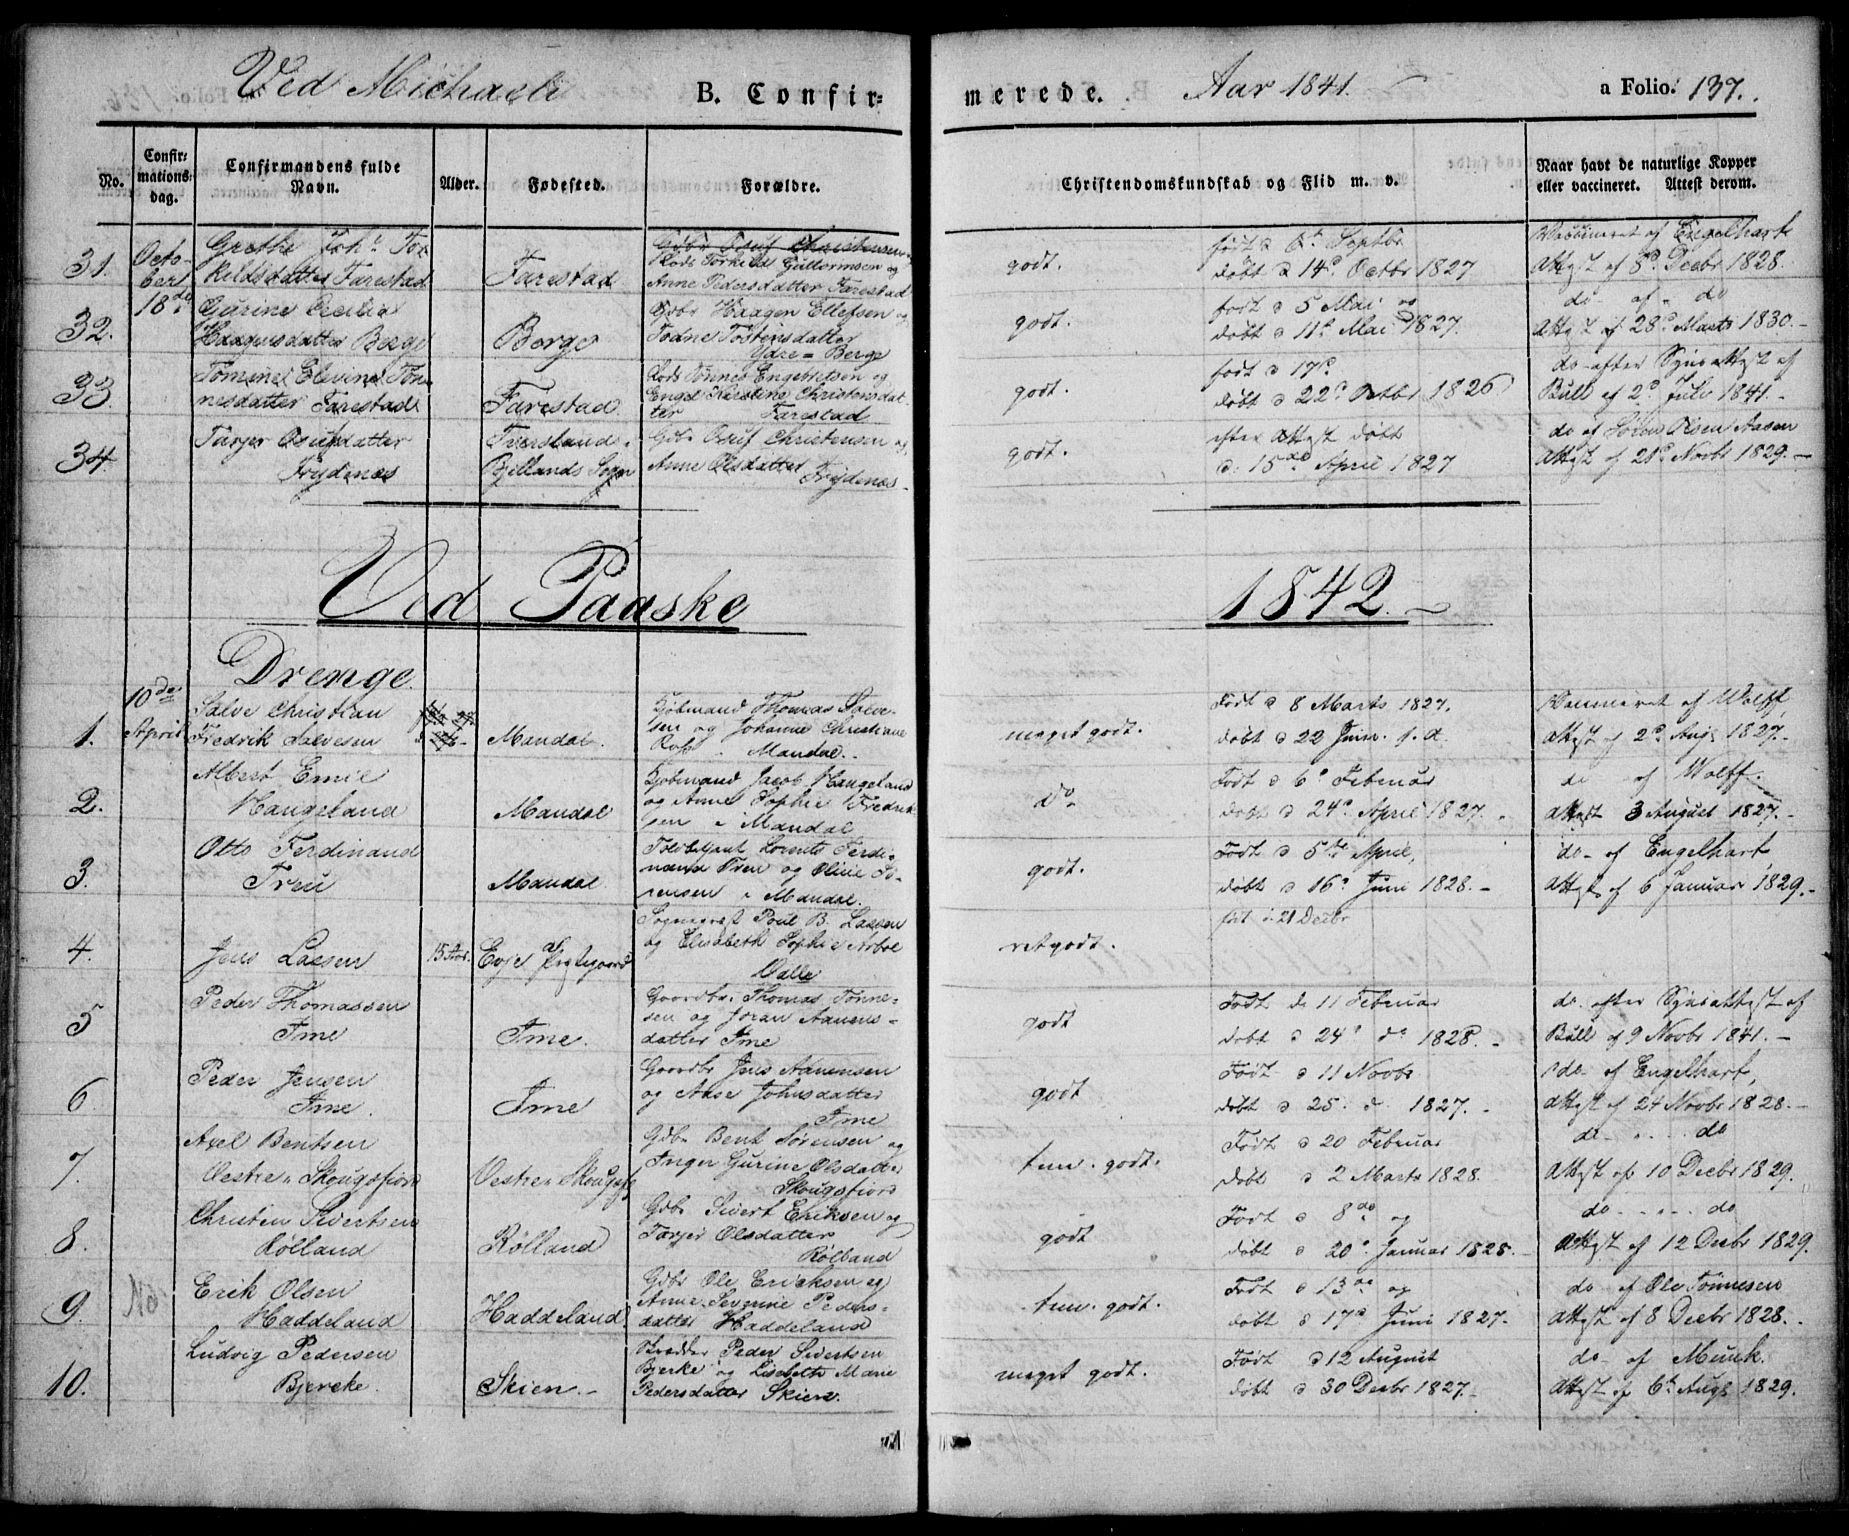 Ved Michaeli B. Confirmerede. Aar 1841. a Folio: 137.
No. Confirmations dag. Confirmandens fulde Navn. Alder. Fødested. Forældre. Christendomskundskab og Flid m. v. Naar havt de naturlige Kopper eller vaccineret. Attest derom.
Octobert 18de
31. Grethe Joh: Torkildsdatter Farestad Farestad
Gdbr Osuf Christensen
Torkild Guttormsen og
Anne Pedersdatter Farestad
godt.
født d 6te Septbr
døbt d 14d Octbr 1827
Vaccineret af Engelhart
Attest af 8d Decbr 1828.
32. Gurine Cecilia Haagensdatter Berge Berge
Gdbr Haagen Ellefsen og
Todne Tostensdatter
Ydre - Berge
godt.
født d 5 Mai og
døbt d 11d Mai 1827.
do af do
Attest af 28d Marts 1830.
33. Tomine Elevine Tønnesdatter Farestad Farestad.
Tønnes Engebretsen og
Engel Kirstine Christensdatter
Farestad
godt.
født d 17d
døbt d 22d Octbr 1826
do efter Synsattest af
Bull af 2d Juli 1841.
34. Tarjer Osufsdatter Frydenæs
Tverstand
Bjellands Sogn
Gdbr Osuf Christensen og
Anne Olsdatter Frydenæs
godt.
efter Attest døbt
d: 15de April 1827
do af Søren Olsen Aasen
Attest af 28d Novbr 1829.
Ved Paaske 1842.
Drenge.
10de April
1. Salve Christian Fredrik Salvesen Mandal.
Kjøbmand Thomas Salvesen og Johanne Christiane
Mandal.
meget godt.
Født d 8 Marts 1827.
døbt d 22 Juni s. A.
Vaccineret af Wolff,
Attest af 2d Aug 1827.
2. Albert Emil Haugeland Mandal
Kjøbmand Jacob Haugeland
og Anne Sophie Fredriksen i Mandal
do
Født d 6d Februar
døbt d 24d April 1827.
do af Wolff.
Attest 3 August 1827.
3. Otto Ferdinand Mandal.
Toldbetjent Lorents Ferdinand
og Oline
i Mandal.
godt.
Født d 5te April,
døbt d 16d Juni 1828.
do af Engelhart,
Attest af 6 Januar 1829.
4. Jens Lassen 15 Aar. Evje Præstegaard
Sognepræst Poul B. Lassen
og Elisabeth Sophie
Valle
ret godt.
født d 21 Decbr
5. Peder Thomassen Ime Ime.
Gaardbr. Thomas Tønnesen og Joran Aanensdatter Ime
godt
Født d 11 Februar
døbt d 24d do 1828.
do efter Synsattest af
Bull af 9 Novbr 1841.
6. Peder Jensen Ime. Ime
Gaardbr Jens Aanensen
og Aase Johnsdatter
Ime
godt
Født d 11 Novbr
døbt d 25. d. 1827.
do af Engelhart,
Attest af 24 Novbr 1828.
7. Axel Bentsen Vestre Skougsfiord Vestre Skougsfj
Gdbr Bent Sørensen og
Inger Gurine Olsdatter
Skougsfiord
tem. godt.
Født d 20 Februar
døbt d 2 Marts 1828.
do do
Attest af 10 Decbr 1829.
8. Christen Sivertsen Rølland Rølland
Gdbr Sivert Eriksen og
Tarjer Olsdatter
Rølland
godt
Født d 8de og
døbt d 20d Januar 1828.
do do
Attest af 12 Decbr 1829.
9. Erik Olsen Haddeland Haddeland
Gdbr Ole Ericksen og
Anne Severine Pedersdatter Haddeland
tem. godt.
Født d 13de og
døbt d 17d Juni 1827.
do af Ole Tønnesen
Attest af 8 Decbr 1828.
10. Ludvig Pedersen Bjercke. Skien.
Peder Sivertsen
Bjerke og Lisabeth Marie
Pedersdatter Skien.
meget godt.
Født d 12 August
døbt d 30 Decbr 1827.
do af Munk.
Attest af 6te Aug 1829.